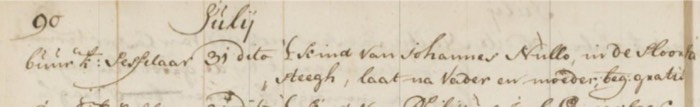 90 July
buurk: Sesselaar 31 dito 't kind van Johannes Nullo, in de
steegh, laat na Vader en moeder, beg: gratis